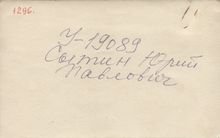 1296.
У 19089
Сыткин Юрий
Павлович